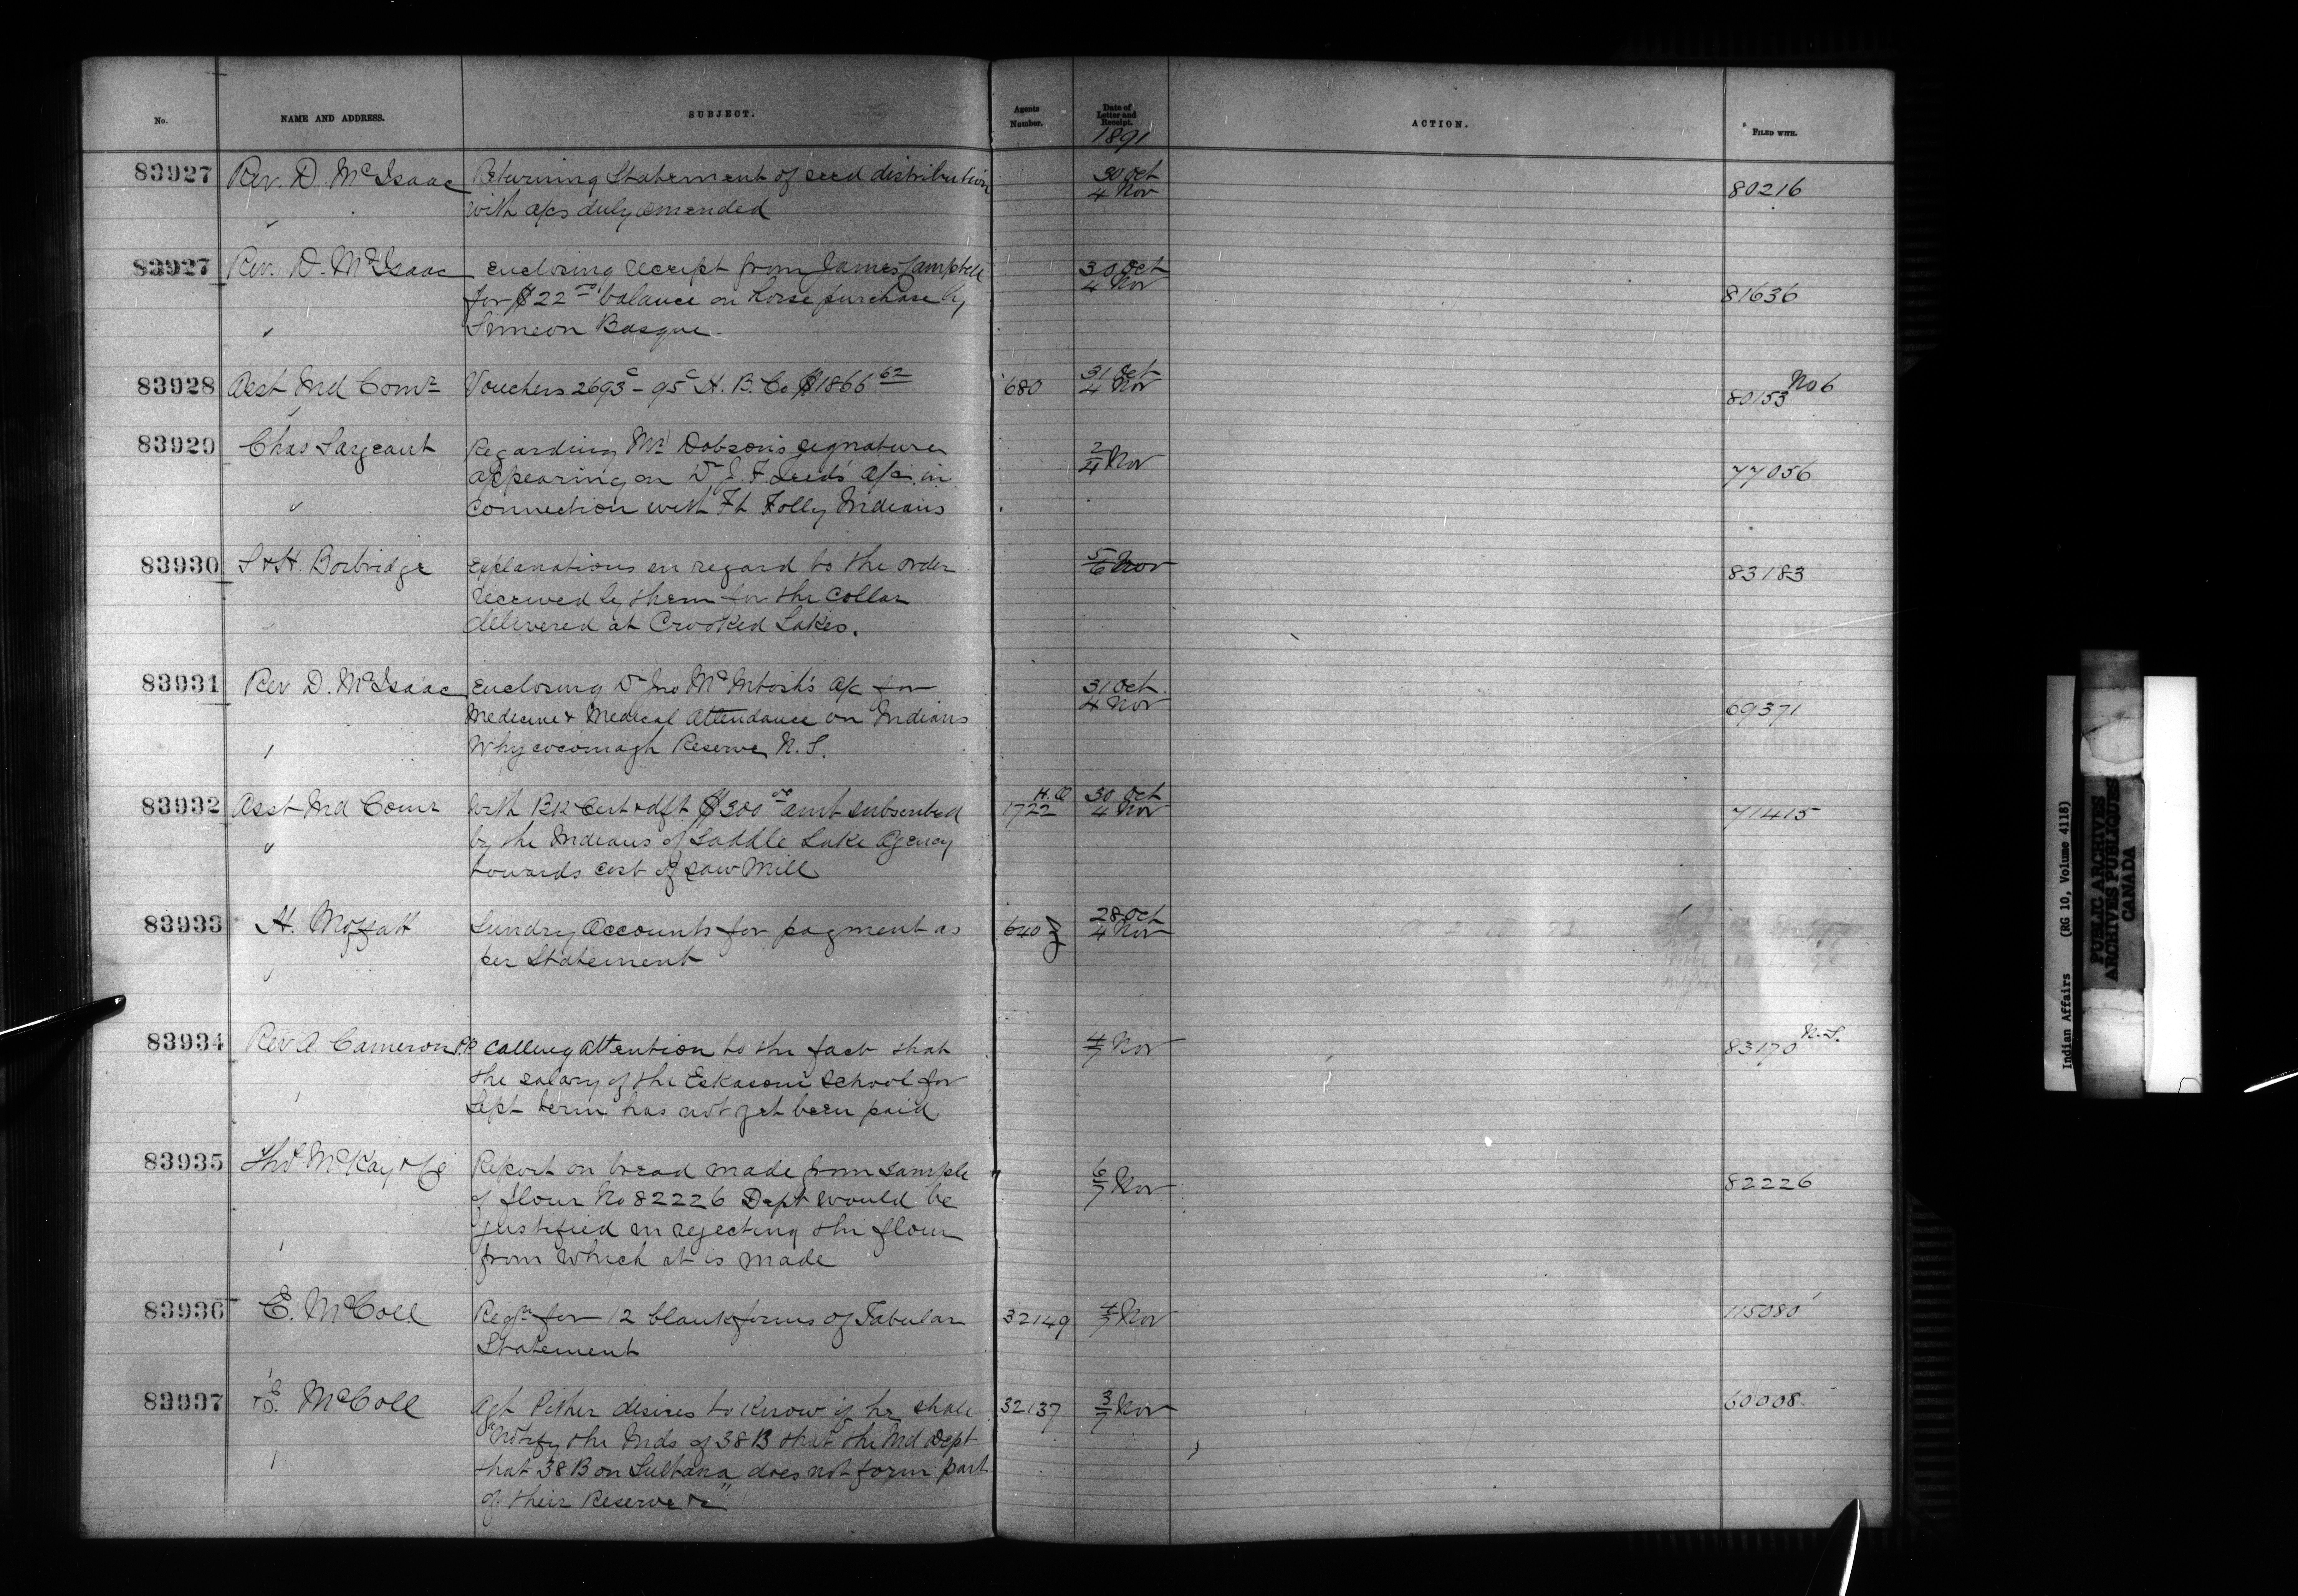 No.
NAME AND ADDRESS.
SUBJECT.
Agents Number.
Date of Letter and Receipt.
1891
ACTION.
FILED WITH.
83927 Rev. D. McIsaac Returning Statement of seed distribution 30 Oct
with a/cs duly amended 4 Nov 80216
83927 Rev. D. McIsaac enclosing receipt from James Campbell 30 Oct
for $22 00 balance on horse purchase by 4 Nov 81636
Simeon Basque
83928 Asst Ind Comr Vouchers 2693c - 95c H. B. Co $1866 62 680 31 Oct 4 Nov 80153 No 6
83929 Chas Sargeant Regarding Mr Dobson's signature
appearing on Dr J. F. a/c in 2/4 Nov 77056
connection with Ft Folly Indians
83930 S & H. Borbridge explanations in regard to the order 5/6 Nov 83183
received by them for the collar
delivered at Crooked Lakes.
83931 Rev D. McIsaac enclosing Dr Jno McIntosh's a/c for 31 Oct
Medicine & Medical Attendance on Indians 4 Nov 69371
Whycocomagh Reserve N. S.
83932 Asst Ind Comr with Bk Cert & dft $300 00 amt subscribed H.O 1722 30 Oct 4 Nov 71415
by the Indians of Saddle Lake Agency
towards cost of saw Mill
83933 H. Moffatt Sundry Accounts for payment as 640 28 Oct 4 Nov
per Statement
83934 Rev A Cameron P.P. Calling attention to the fact that 4/7 Nov 83170 N.S.
the salary of the Eskasoni School for
Sept term has not yet been paid
83935 Thos McKay & Co Report on bread made from sample 6/7 Nov 82226
of flour No 82226 Dept would be
justified in rejecting the flour
from which it is made
83936 E. McColl Reqn for 12 blank forms of Tabular 32149 4/7 Nov 115080
Statement
83937 E. McColl Agt Pither desires to know if he shall 32137 3/7 Nov 60008
"Notify the Inds of 38 B that the Ind Dept
that 38 B on Sultana does not form part
of their Reserve &c"
Indian Affairs (RG 10, Volume 4118)
PUBLIC ARCHIVES
ARCHIVES PUBLIQUES
CANADA